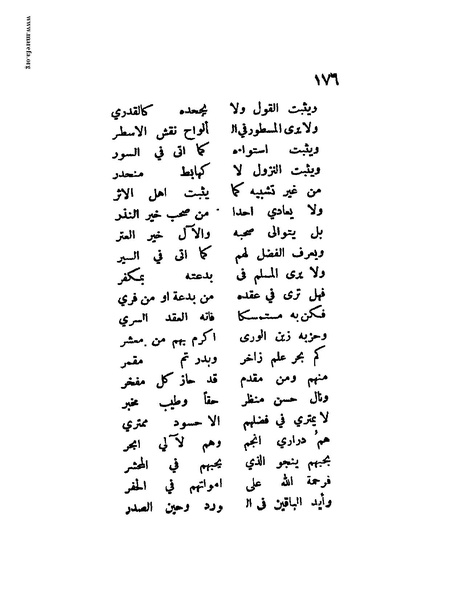 www.marefa.org
١٧٦
ويثبت القول ولا يجحده كالقدري
ولا يرى المسطور في الـ ألواح نقش الاسطر
ويثبت استواءه كما اتى في السور
ويثبت النزول لا كهابط منحدر
من غير تشبيه كما يثبت اهل الاثر
ولا يعادي احدا من صحب خير النذر
بل يتوالى صحبه والآل خير العتر
ويعرف الفضل لهم كما اتى في السير
ولا يرى المسلم فى بدعته بمكفر
فهل ترى في عقده من بدعة او من فري
فكن به مستمسكا فانه العقد السري
وحزبه زين الورى اكرم بهم من معشر
كم بحر علم زاخر وبدر تم مقمر
منهم ومن مقدم قد حاز كل مفخر
ونال حسن منظر حقاً وطيب مخبر
لا يمتري في فضلهم الا حسود ممتري
همُ دراري انجم وهم لآلي ابحر
بحبهم ينجو الذي يحبهم في المحشر
فرحمة الله على امواتهم في الحفر
وأيد الباقين فى الـ ورد وحين الصدر